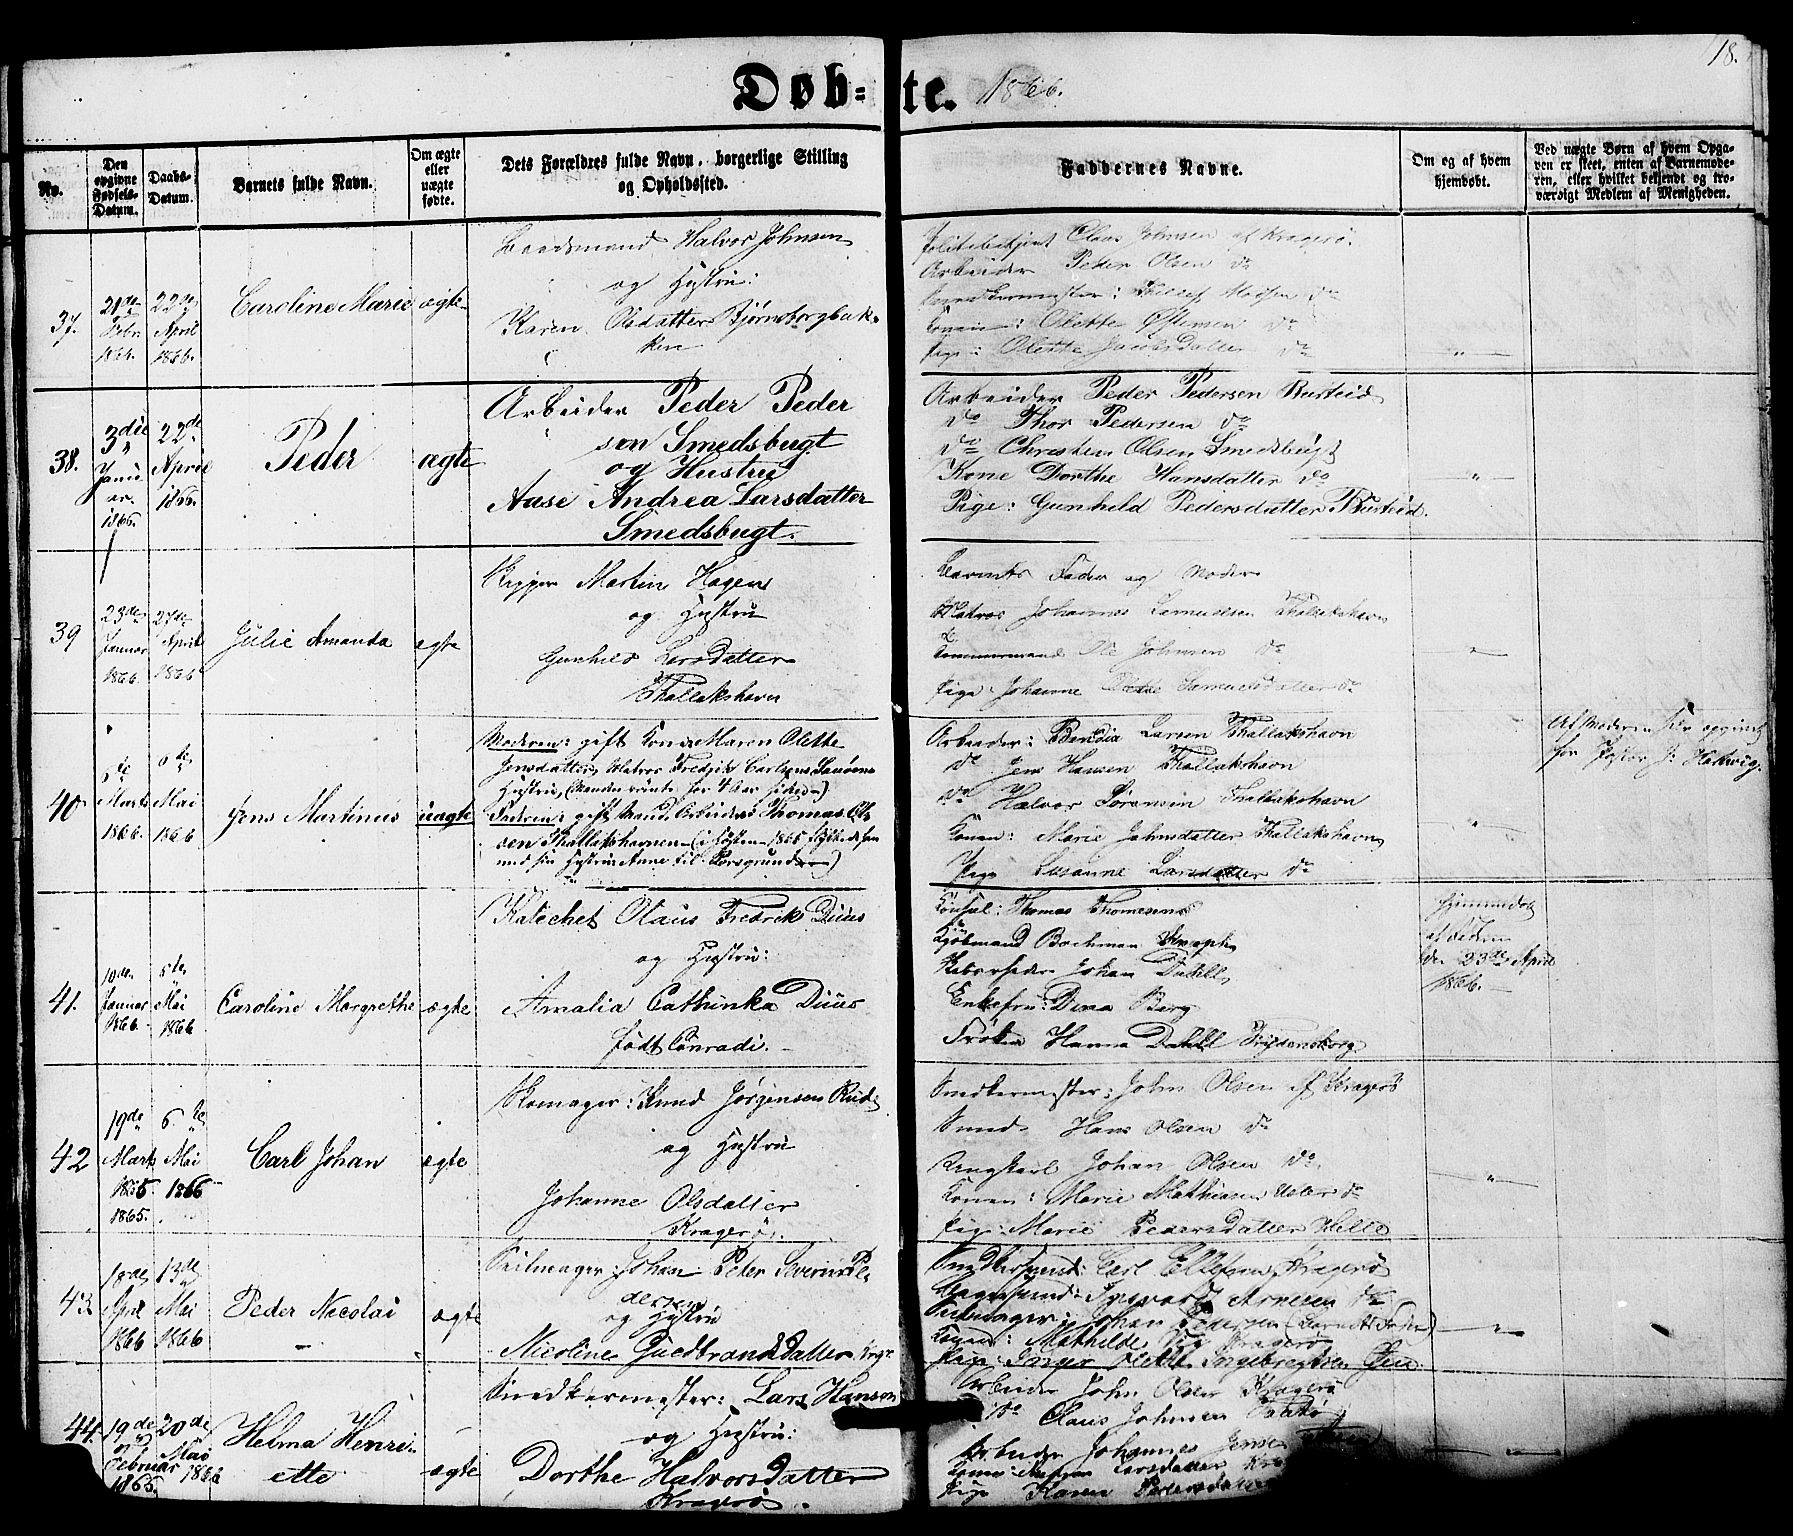 18.
Døb- te. 1866.
No.
Den opgivne Fødsels-Datum.
Daabs-Datum.
Barnets fulde Navn.
Om ægte eller uægte fødte.
Dets Forældres fulde Navn, borgerlige Stilling og Opholdssted.
Faddernes Navne.
Om og af hvem hjemdøbt.
Ved uægte Børn af hvem Opgaven er skeet, enten af Barnemoderen, eller hvilket bekjendt og troværdigt Medlem af Menigheden.
37.
21de
22de April 1866.
Caroline Marie
ægte
Halvor Johnsen
og Hustru:
Karen Olsdatter Bjørnsborgbak-
ken
Claus Johnsen af Kragerø.
Arbeider Peder Olsen do
Madsen do
Konen: Olette Østensen do
Pige: Olette do
38.
3die Januar. 1866.
22de April 1866.
Peder
ægte
Arbeider Peder Peder
sen Smedsbugt
og Hustru
Aase Andrea Larsdatter
Smedsbugt.
Arbeider Peder Pedersen Busteid
do Thor Pedersen do
do Christen Olsen Smedsbugt
Kone Dorthe Hansdatter do
Pige: Gunhild Pedersdatter Busteid.
39
23de Januar 1866.
27de April 1866
Julie Amanda
ægte
Skipper Martin Hagens
og Hustru
Gunhild Larsdatter
Thallakshavn
Barnets Fader og Moder
Matros Johannes Samuelsen Thallakshavn
Tømmermand Ole Johnsen do
Pige: Johanne Samuelsdatter do
40
6te Marts 1866.
6te Mai 1866
Jens Martinus
uægte
Moderen: gift Kone Maren Olette
Jensdatter, Matros Fredrik Carlsens
Hustru, (Manden rømte for 4 Aar siden)
Faderen: gift Mand, Arbeider Thomas Ol-
sen Thallakshavnen (i Høsten 1865 flyttede han
med sin Hustru Anne til Porsgrund)
Arbeider: Larsen Thallakshavn
do Jens Hansen Thallakshavn
do Halvor Sørensen Thallakshavn
Konen: Marie Johnsdatter Thallakshavn
Pige Susanne Larsdatter do
Af Moderen selv opgivet
for Pastor J.
41.
19de Januar 1866.
5te Mai 1866
Caroline Margrethe
ægte
Katechet Olaus Fredrik Duus
og Hustru:
Amalia Cathinka Duus
født Conradi.
Konsul: Thomas Thomesen
Kjøbmand Bochman Knoph
Johan Dahll
Enkefru: Dina Barg
Frøken Hanna Dahll
Hjemmedøbt
af Federen
den 23de April
1866.
42
19de Marts 1865.
6te Mai 1866
Carl Johan
ægte
Skomager: Knud Jørgensen Rud
og Hustru
Johanne Olsdatter
Kragerø.
Snedkermester: John Olsen af Kragerø
Smed Hans Olsen do
Ungkarl Johan Olsen do.
Konen: Marie Mathiasen do
Pige: Marie Pedersdatter
43.
18de April 1866
13de Mai 1866
Peder Nicolai
ægte
Seilmager: Johan Peter Severin Pe
dersen
og Hustru
Nicoline Guldbrandsdatter
Carl Ellefsen Kragerø
Arnesen do
Seilmager: Johan Pedersen (Barnets Fader)
Konen: Mathilde Kragerø
Pige: Inger Olette Ingebregtsen
44.
19de Februar 1866.
20de Mai 1866
Helma Henri-
ette
ægte
Snedkermester: Lars Hanson
og Hustru:
Dorthe Halvorsdatter
Kragerø.
Arbeider John Olsen Kragerø
do Claus Johnsen
Arbeider Johannes
Larsdatter
Pige Karen Pedersdatter